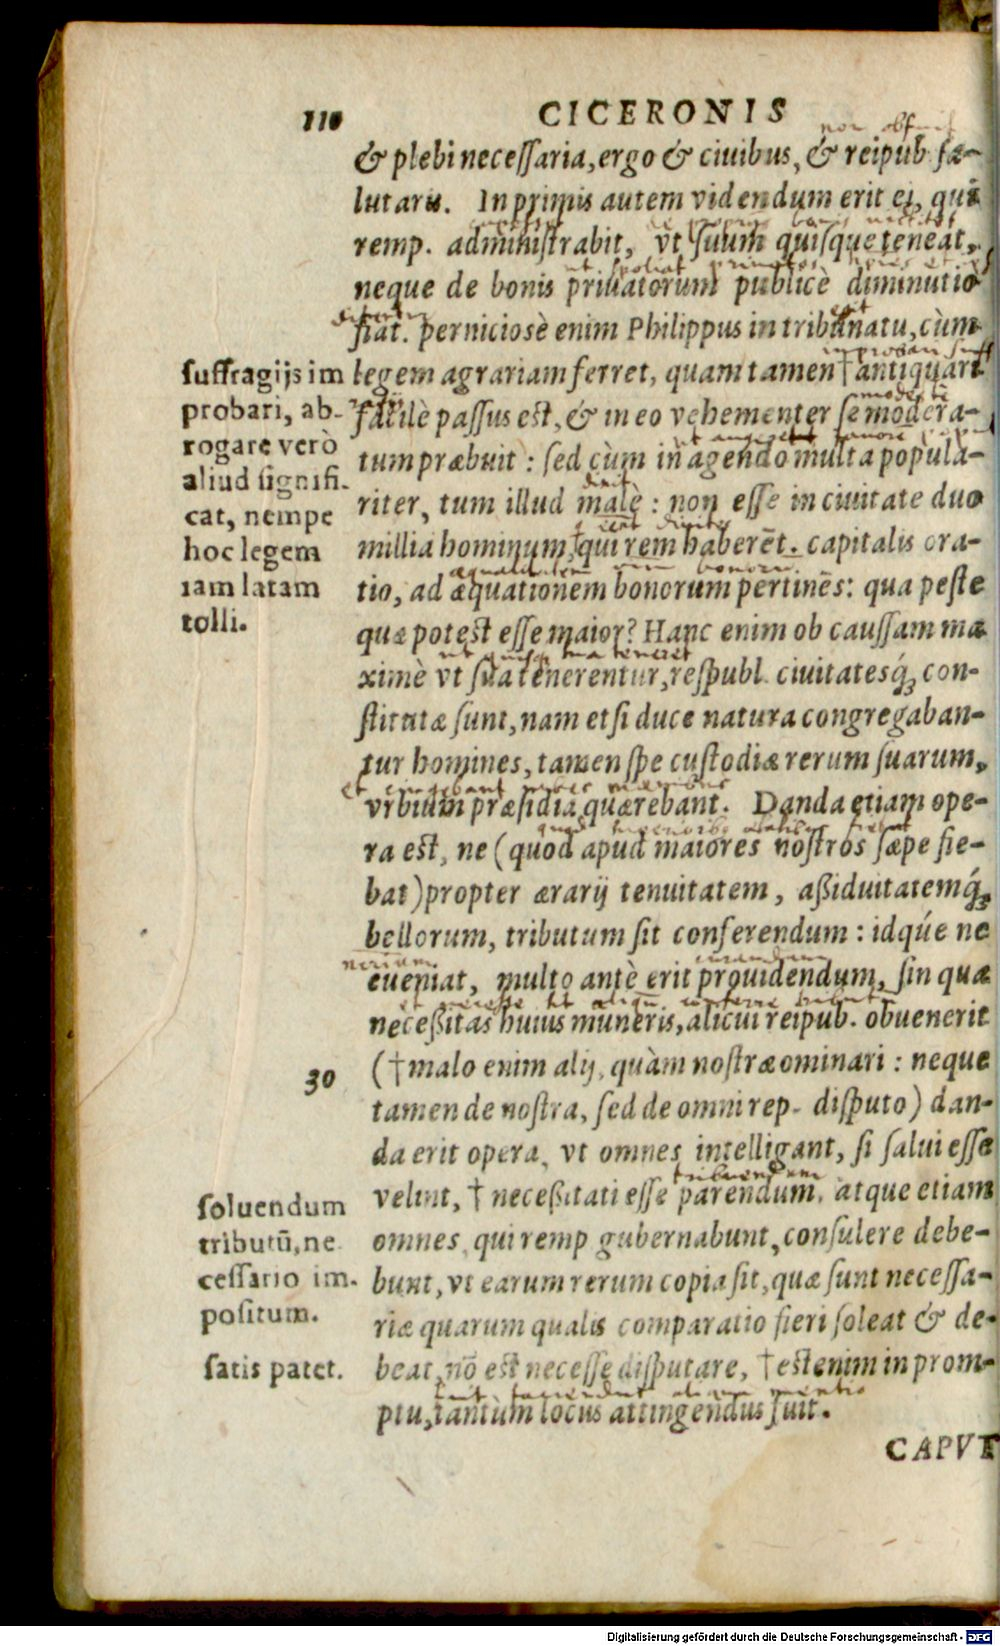 110
CICERONIS
& plebi necessaria, ergo & ciuibus, & reipub sæ-
lutaris. In primis autem videndum erit ei, qui
remp. administrabit, vt suum quisque teneat,
neque de bonis priuatorum publicè diminutio
fiat. perniciosè enim Philippus in tribunatu, cùm
legem agrariam ferret, quam tamen † antiquari
facilè passus est, & in eo vehementer se modera-
tum præbuit : sed cùm in agendo multa popula-
riter, tum illud malè : non esse in ciuitate duo
millia hominum, † qui rem haberēt. capitalis ora-
tio, ad æquationem bonorum pertinēs: qua peste
quæ potest esse maior? Hanc enim ob caussam ma
ximè vt sua tenerentur, respubl. ciuitatesq́ꝫ con-
stitutæ sunt, nam etsi duce natura congregaban-
tur homines, tamen spe custodiæ rerum suarum,
vrbium præsidia quærebant. Danda etiam ope-
ra est, ne (quod apud maiores nostros sæpe fie-
bat) propter ærarij tenuitatem, aßiduitatemq́ꝫ
bellorum, tributum sit conferendum : idq́ue ne
eueniat, multo antè erit prouidendum, sin quæ
neceßitas huius muneris, alicui reipub. obuenerit
(† malo enim alij, quàm nostræ ominari : neque
tamen de nostra, sed de omni rep. disputo) dan-
da erit opera, vt omnes intelligant, si salui esse
velint, † neceßitati esse parendum, atque etiam
omnes, qui remp gubernabunt, consulere debe-
bunt, vt earum rerum copia sit, quæ sunt necessa-
riæ quarum qualis comparatio fieri soleat & de-
beat, nō est necesse disputare, † est enim in prom-
ptu, tantum locus attingendus fuit.
CAPVT
suffragijs im
probari, ab-
rogare verò
aliud signifi-
cat, nempe
hoc legem
iam latam
tolli.
30
soluendum
tributū, ne
cessario im-
positum.
satis patet.
Digitalisierung gefördert durch die Deutsche Forschungsgemeinschaft - DFG